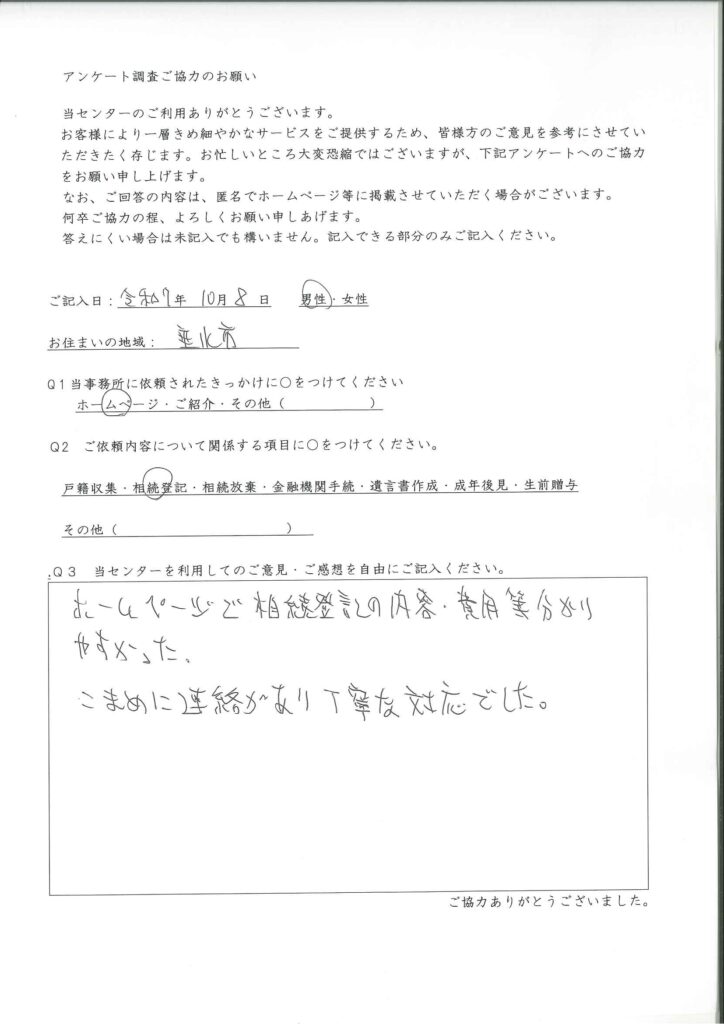 アンケート調査ご協力のお願い
当センターのご利用ありがとうございます。
お客様により一層きめ細やかなサービスをご提供するため、皆様方のご意見を参考にさせてい
ただきたく存じます。お忙しいところ大変恐縮ではございますが、下記アンケートへのご協力
をお願い申し上げます。
なお、ご回答の内容は、匿名でホームページ等に掲載させていただく場合がございます。
何卒ご協力の程、よろしくお願い申しあげます。
答えにくい場合は未記入でも構いません。記入できる部分のみご記入ください。
ご記入日：令和7年 10月 8日 男性・女性
お住まいの地域： 垂水市
Q1当事務所に依頼されたきっかけに○をつけてください
ホームページ・ご紹介・その他（ ）
Q2 ご依頼内容について関係する項目に○をつけてください。
戸籍収集・相続登記・相続放棄・金融機関手続・遺言書作成・成年後見・生前贈与
その他（ ）
.Q3 当センターを利用してのご意見・ご感想を自由にご記入ください。
ホームページで相続登記の内容・費用等分かり
やすかった.
こまめに連絡があり丁寧な対応でした。
ご協力ありがとうございました。